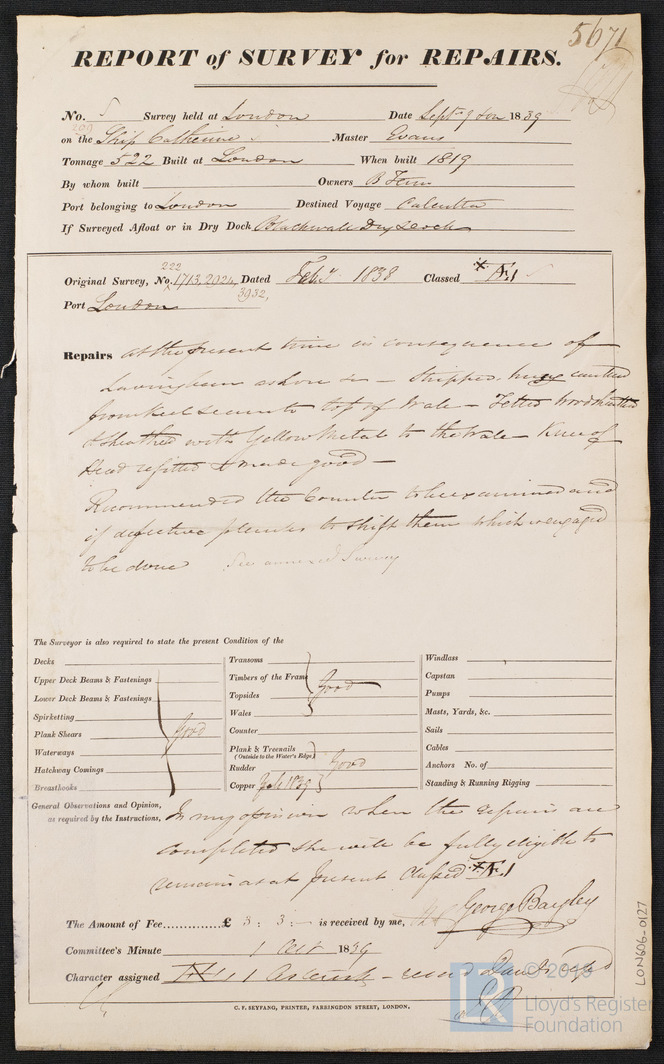 5671
REPORT of SURVEY for REPAIRS.
No. Survey held at London Date Septr 9 1839
on the Ship Catherine Master Evans
Tonnage 522 Built at London When built 1819
By whom built Owners B Fenn
Port belonging to London Destined Voyage Calcutta
If Surveyed Afloat or in Dry Dock Blackwall Dry Dock
222
Original Survey, No. 1713, 2024, Dated Feby 1838 Classed Æ1
3932,
Port London
Repairs at the present time in consequence of
having been ashore in - Stripped, caulked
from keel seam to top of Wale - Felted Wood sheathed
& Sheathed with Yellow Metal to the Wale - Knee of
Head refitted & made good -
Recommended the Counter to be examined and
if defective planks to shift them which is engaged
to be done See annexed Survey
The Surveyor is also required to state the present Condition of the
Decks
Upper Deck Beams & Fastenings
Lower Deck Beams & Fastenings
Spirketting
Plank Shears
Waterways
Hatchway Comings
Breasthooks
Good
Transoms
Timbers of the Frame
Topsides
Wales
Good
Counter
Plank & Treenails
(Outside to the Water's Edge)
Rudder
Good
Copper 1839
Windlass
Capstan
Pumps
Masts, Yards, &c.
Sails
Cables
Anchors No. of
Standing & Running Rigging
General Observations and Opinion,
as required by the Instructions,
In my opinion when the repairs are
completed she will be fully eligible to
remain as at present Classed Æ1
The Amount of Fee............... £ 3 : 3 : - is received by me, George Bayley
Committee's Minute 1 Octr 1839
Character assigned Æ 1
C. F. SEYFANG, PRINTER, FARRINGDON STREET, LONDON.
LON606-0127
Lloyd's Register
Foundation